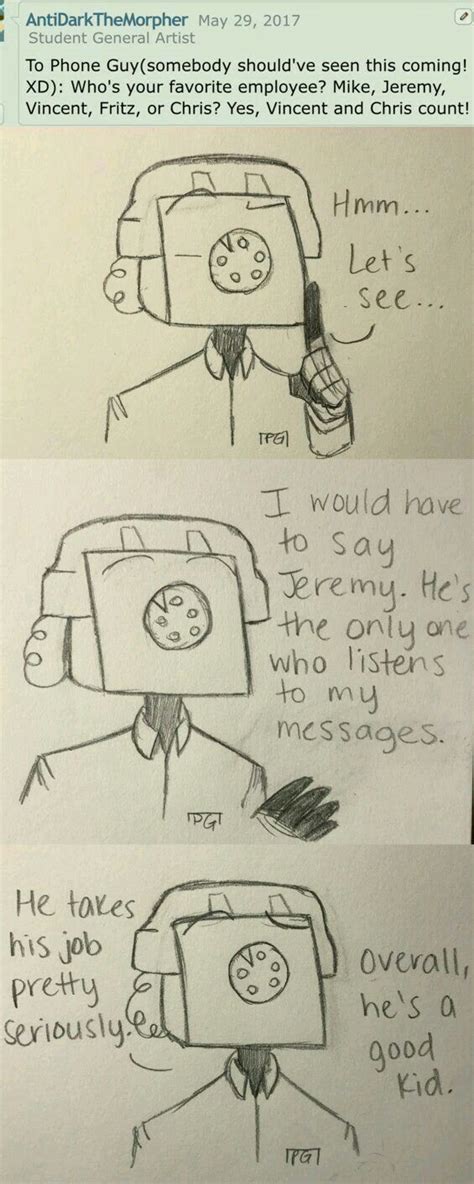 AntiDarkTheMorpher May 29, 2017
Student General Artist
To Phone Guy(somebody should've seen this coming!
XD): Who's your favorite employee? Mike, Jeremy,
Vincent, Fritz, or Chris? Yes, Vincent and Chris count!
Hmm...
Let's
see...
PG
I would have
to say
Jeremy. He's
the only one
who listens
to my
messages.
PG
He takes
his job
pretty
seriously.
Overall,
he's a
good
kid.
PG